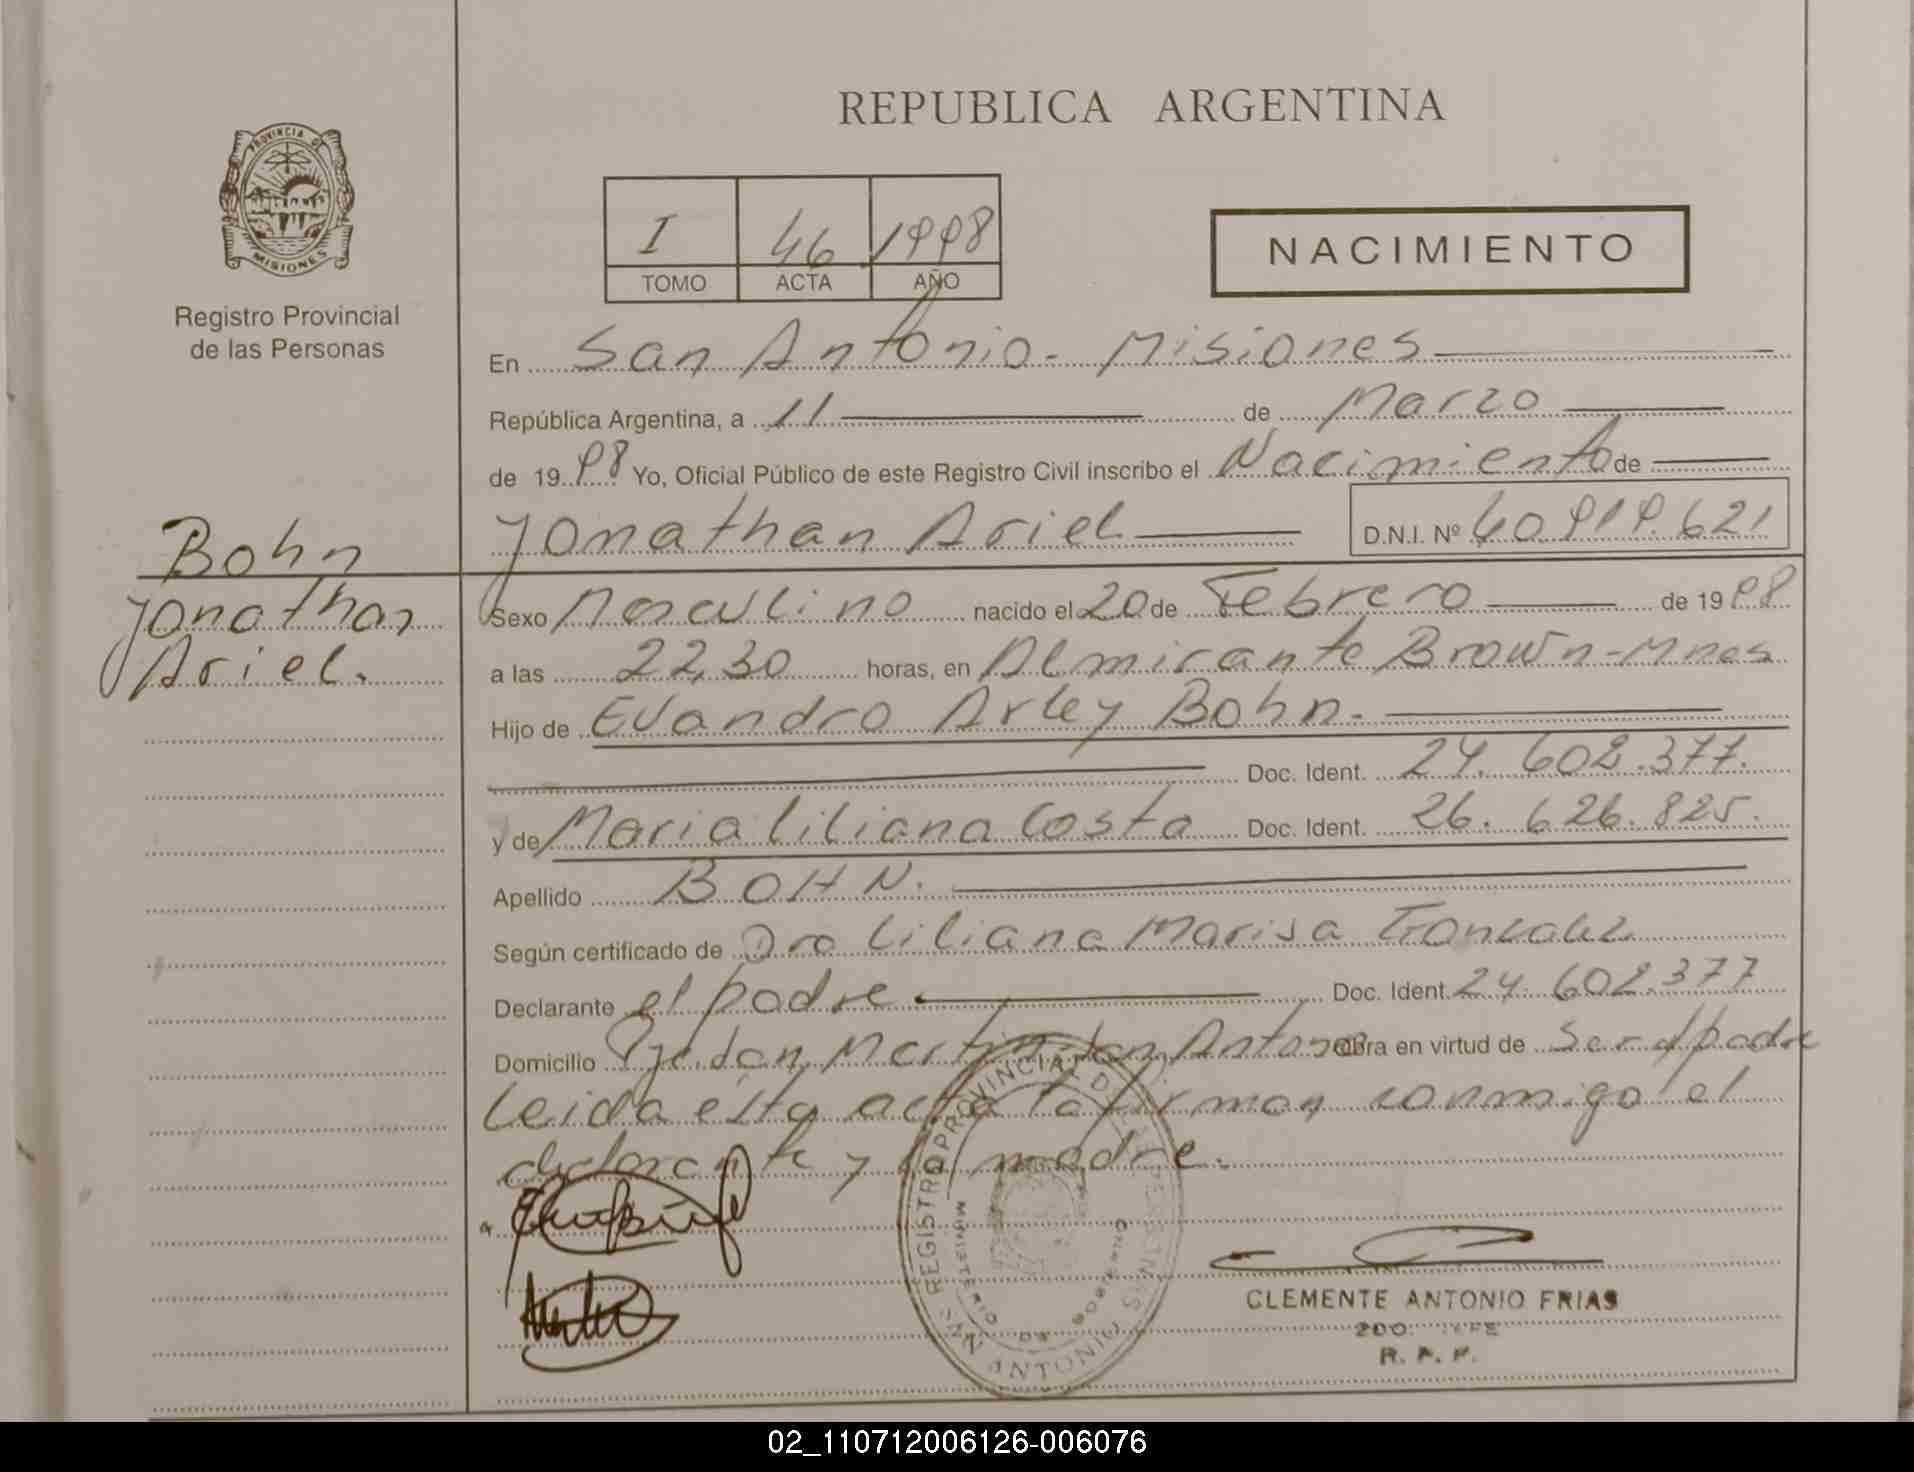 REPUBLICA ARGENTINA
PROVINCIA DE
MISIONES
Registro Provincial
de las Personas
I 46 1998
TOMO ACTA AÑO
NACIMIENTO
En San Antonio - Misiones
República Argentina, a 11 de Marzo
de 1998 Yo, Oficial Público de este Registro Civil inscribo el Nacimiento de
Jonathan Ariel D.N.I. Nº 40.919.621
Bohn
Jonathan
Ariel.
Sexo Masculino nacido el 20 de Febrero de 1998
a las 22,30 horas, en Almirante Brown - Mnes
Hijo de Evandro Arley Bohn.
Doc. Ident. 24.602.377.
y de Maria Liliana Costa Doc. Ident. 26.626.825.
Apellido BOHN.
Según certificado de Dra Liliana Marisa Gonzalez
Declarante el padre Doc. Ident. 24.602.377
Domicilio Pje. San Martin, San Antonio Obra en virtud de Ser el padre
Leida esta acta la firman conmigo el
declarante y la madre.
REGISTRO PROVINCIAL DE LAS PERSONAS
MINISTERIO DE GOBIERNO
SAN ANTONIO
CLEMENTE ANTONIO FRIAS
2DO. JEFE
R. P. P.
02_110712006126-006076